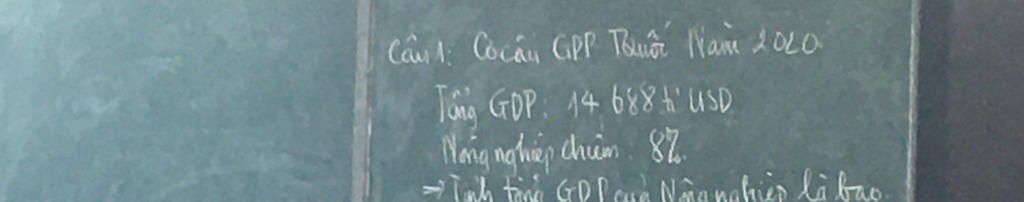 Câu 1: Cơ cấu GDP TQuốc Năm 2020
Tổng GDP: 14 688 tỉ USD
Nông nghiệp chiếm: 8%
⇒ Tính tổng GDP của Nông nghiệp là bao